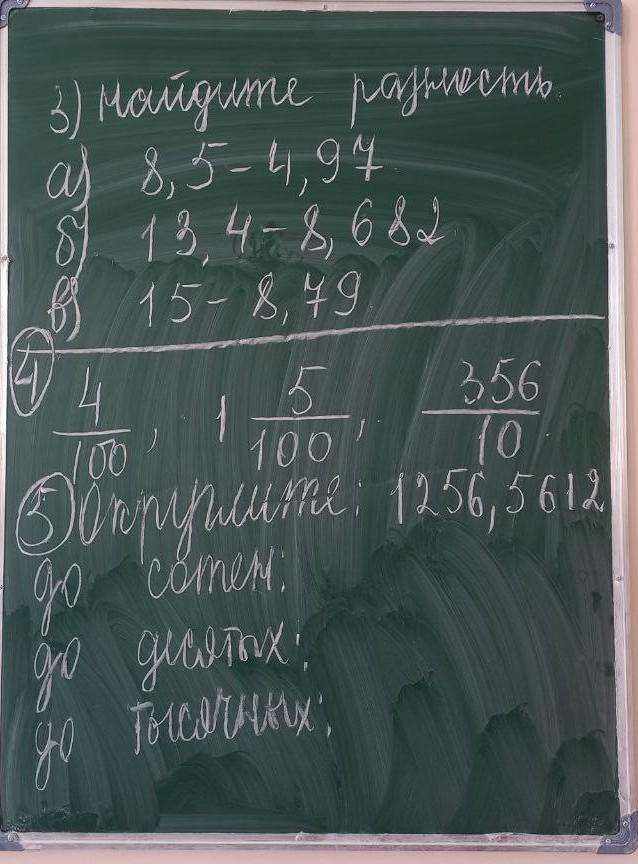 3) Найдите разность.
а) 8,5 - 4,97
б) 13,4 - 8,682
в) 15 - 8,79
4) 4/100, 1 5/100, 356/10.
5) Округлите: 1256,5612
до сотен:
до десятых:
до тысячных: